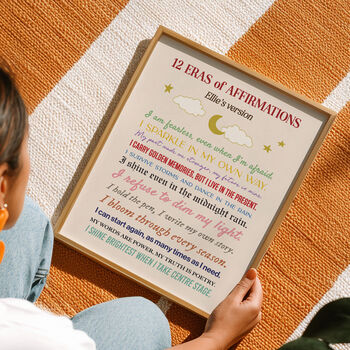 12 ERAS of AFFIRMATIONS
Ellie's version
I am fearless, even when I'm afraid.
I SPARKLE IN MY OWN WAY.
My past made me stronger, my future is mine.
I CARRY GOLDEN MEMORIES, BUT LIVE IN THE PRESENT.
I SURVIVE STORMS AND DANCE IN THE RAIN.
I shine even in the midnight rain.
I refuse to dim my light.
I hold the pen, I write my own story.
I bloom through every season.
I can start again, as many times as I need.
MY WORDS ARE POWER, MY TRUTH IS POETRY.
I SHINE BRIGHTEST WHEN I TAKE CENTRE STAGE.